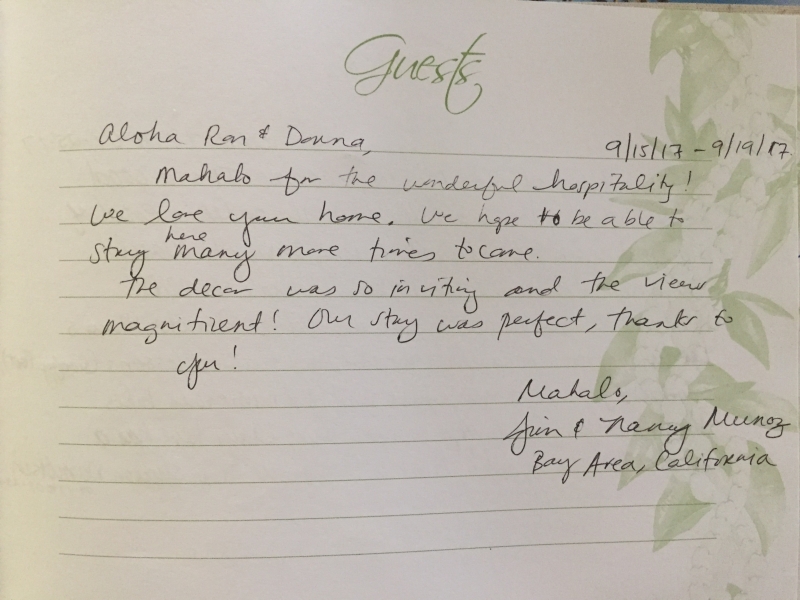 Guests
Aloha Ron & Donna,
9/15/17 - 9/19/17
Mahalo for the wonderful hospitality!
We love your home. We hope to be able to
stay here many more times to come.
The decor was so inviting and the view
magnifizent! Our stay was perfect, thanks to
you!
Mahalo,
Jim & Nancy Munoz
Bay Area, California